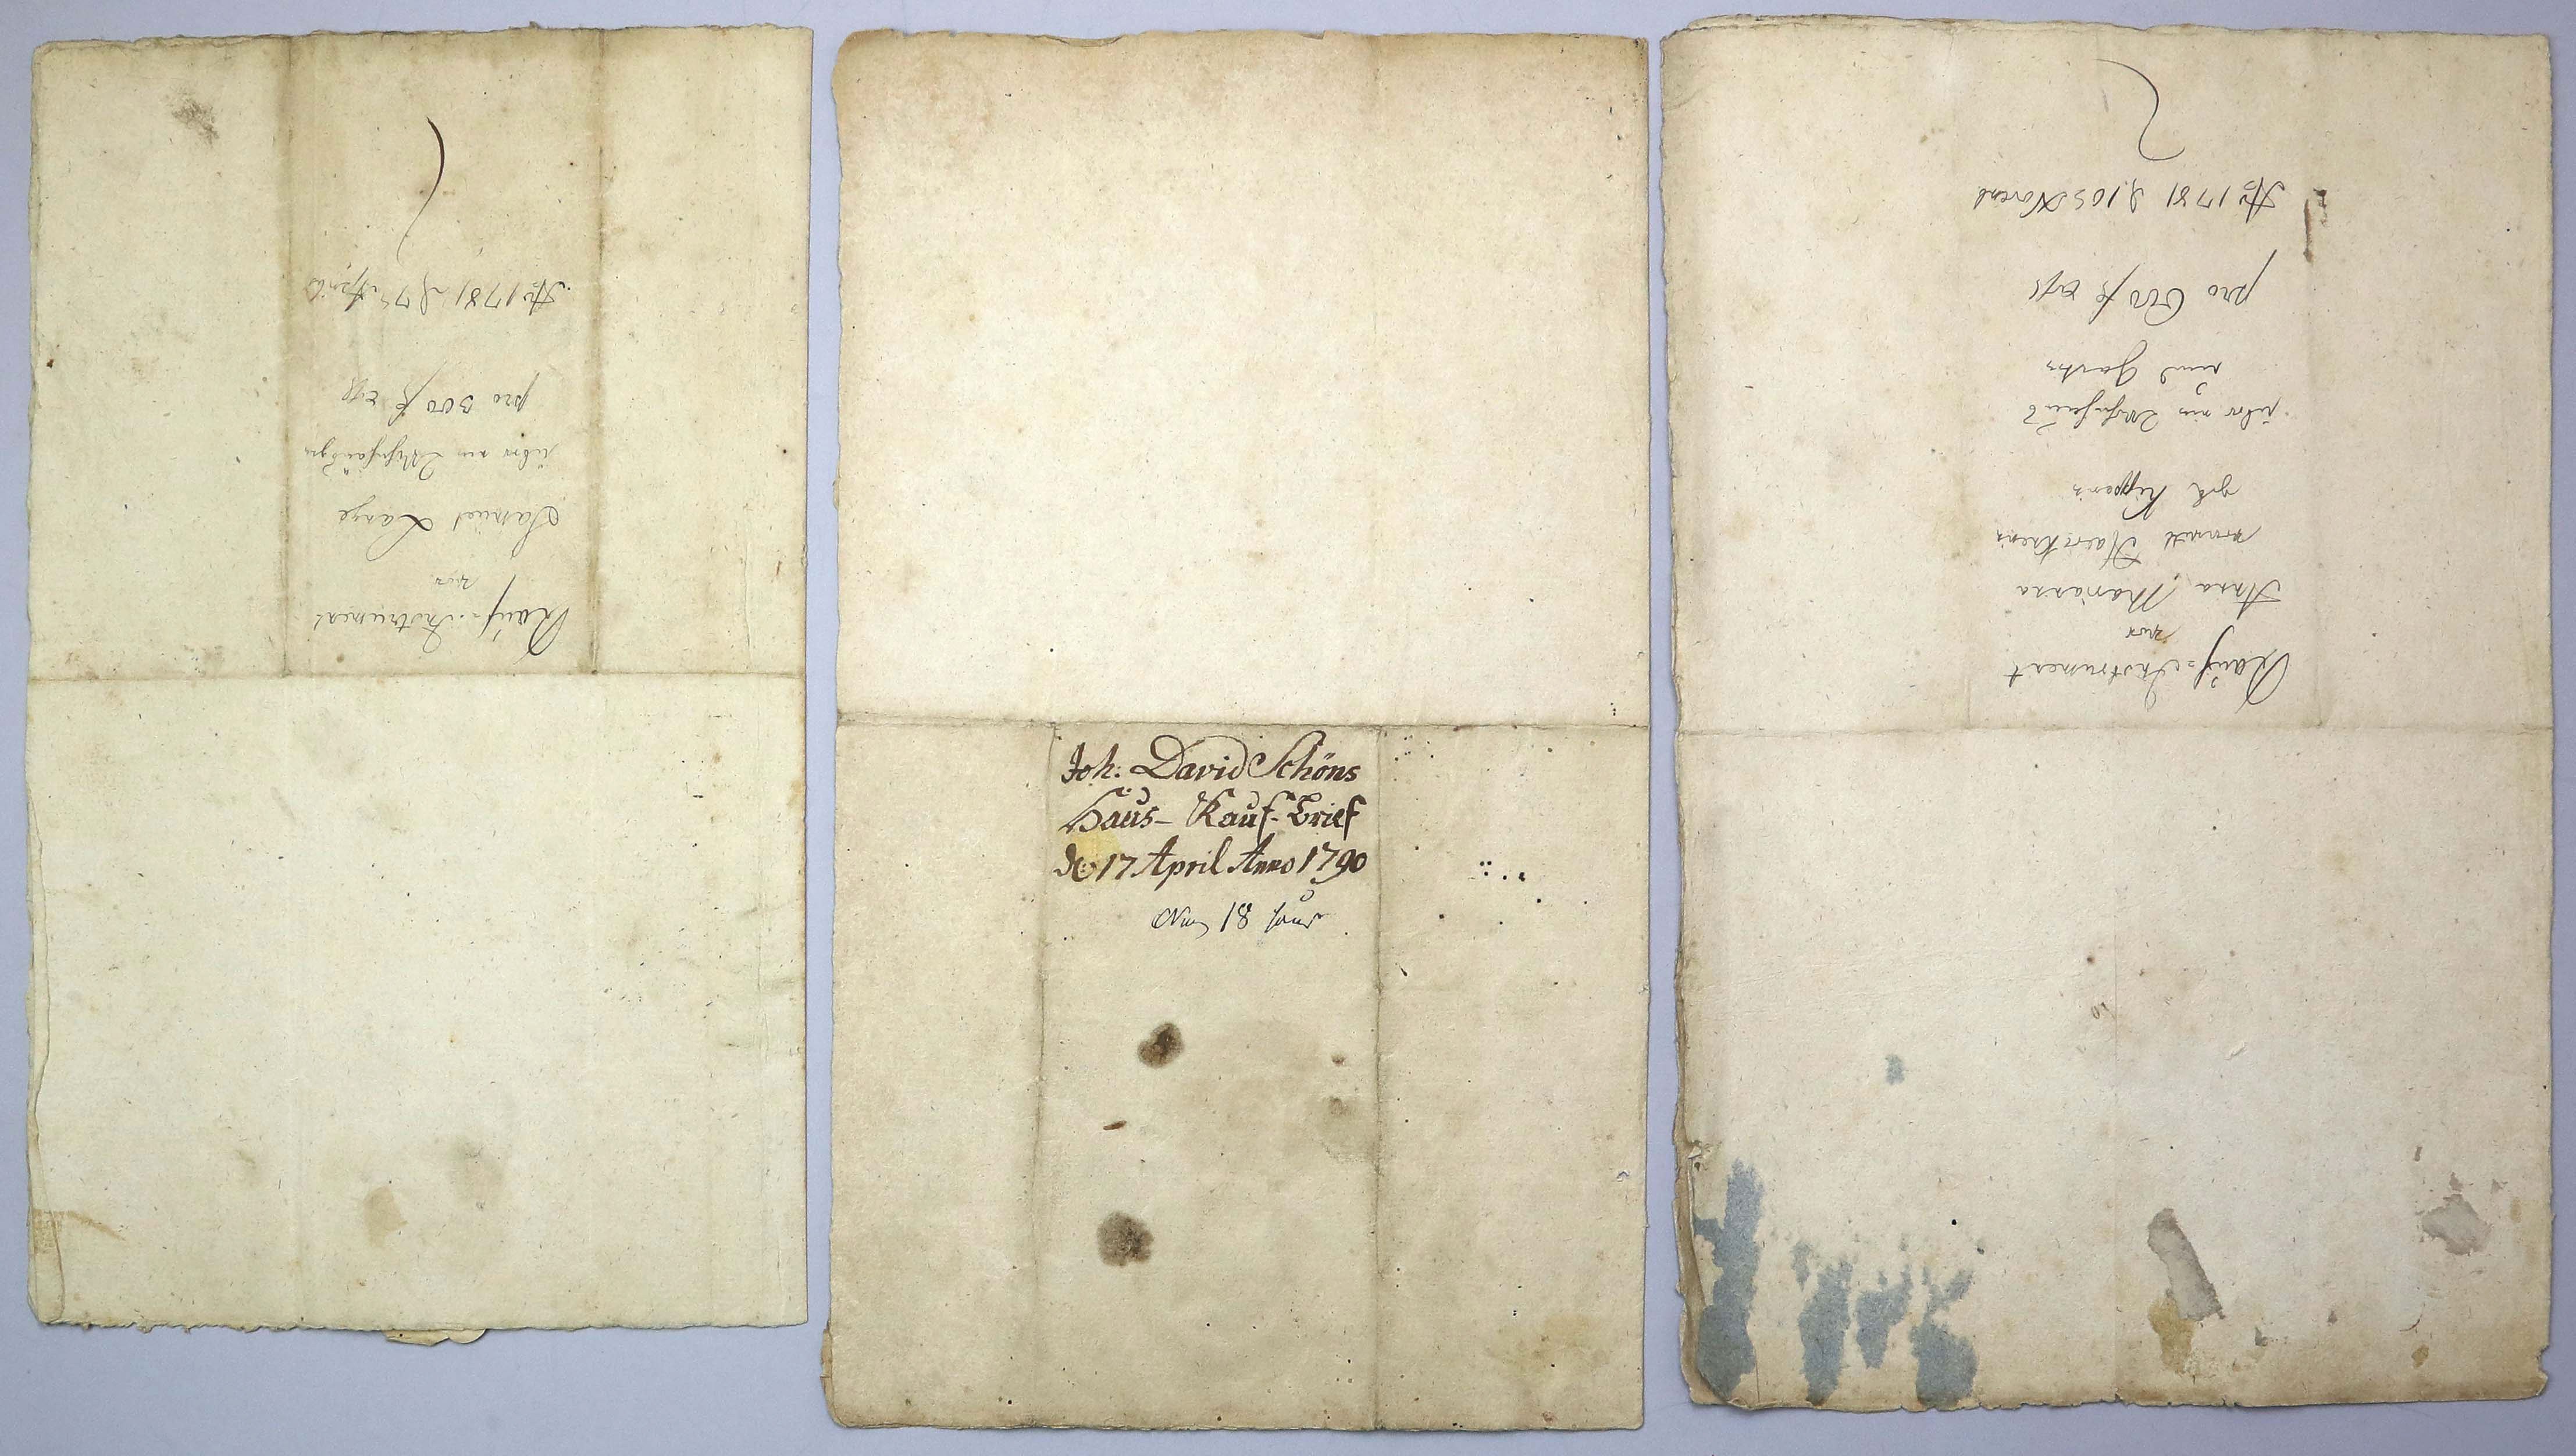 Kauf=Instrument
vor
Samuel Lange
über ein Wohnhäusgen
pro 300 f
Ao 1781 d 7 April
Joh: David Schöns
Haus- Kauf-Brief
do 17 April Anno 1790
18
Kauf=Instrument
vor
Anna Marianna
geb
über ein Wohnhauß
und Garten
pro 600 f
Ao 1781 d 10 Novemb